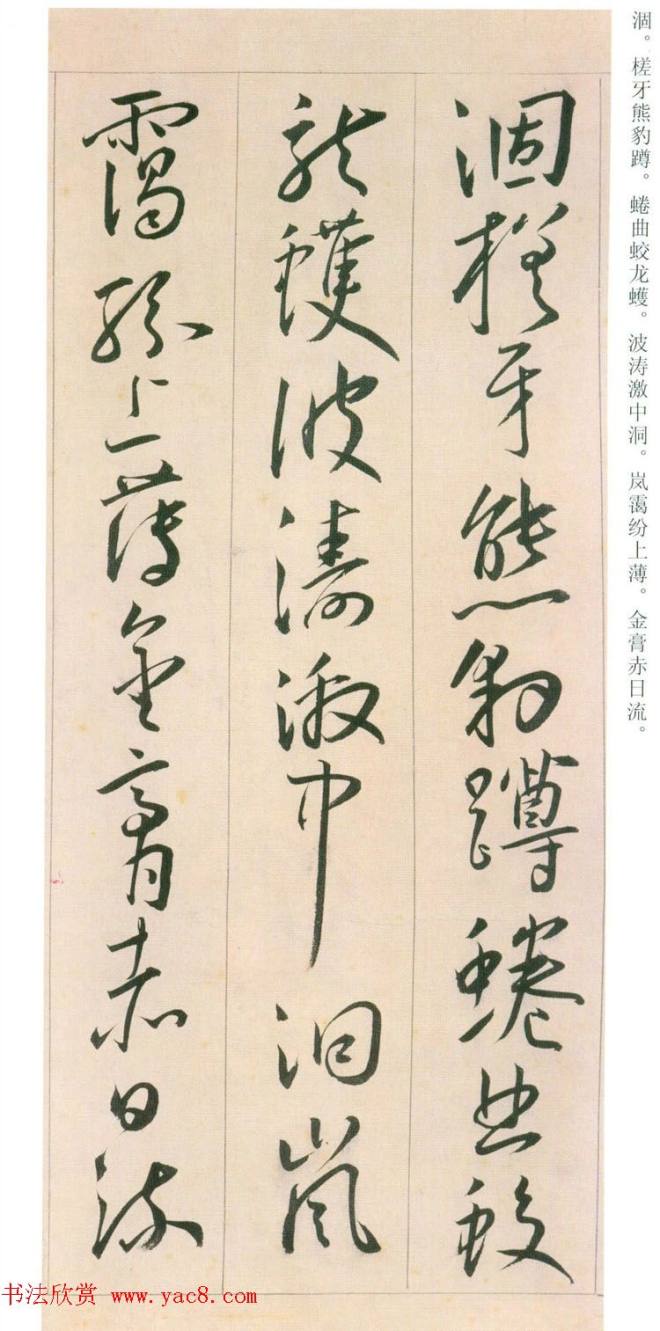 涸。槎牙熊豹蹲。蜷曲蛟龙蠖。波涛激中洞。岚霭纷上薄。金膏赤日流。
涸槎牙熊豹蹲蜷曲蛟
龙蠖波涛激中洞岚
霭纷上薄金膏赤日流
书法欣赏 www.yac8.com